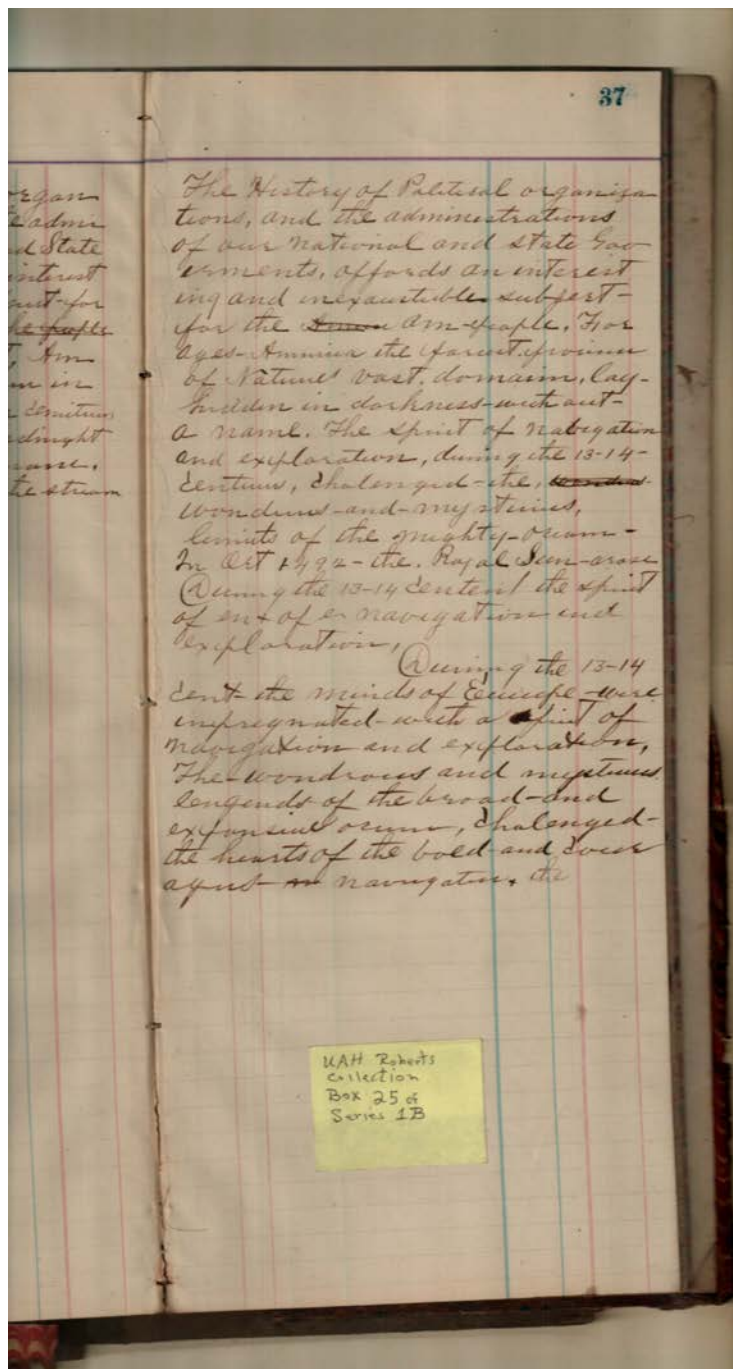 37
organ
e admi
nd State
interest
ject-for
he people
, Am
in in
centuries
idnight
name.
he stream
The History of Political organiza
tions, and the administrations
of our national and state Gov
erments, affords an interest
ing and inexaustible subject-
for the Am-people. For
ages- the
of Natures vast. domain, lay-
hidden in darkness-without-
a name. The spirit of nabigation
and exploration, during the 13-14-
Centuries, Chalenged-the,
wonders-and-mysteries,
limits of the mighty-ocean-
In Oct 1492-the. Royal Sun-arose
During the 13-14 Centent the spirit
of ex of e navigation and
exploration,
During the 13-14
Cent-the minds of Europe-were
impregnated-with a spirit of
navigation and exploration,
The-wondrous and mysterious
lengends of the broad-and
expansive ocean, Chalenged-
the hearts of the bold-and cour
agus- navigator, the
UAH Roberts
Collection
Box 25 of
Series 1B